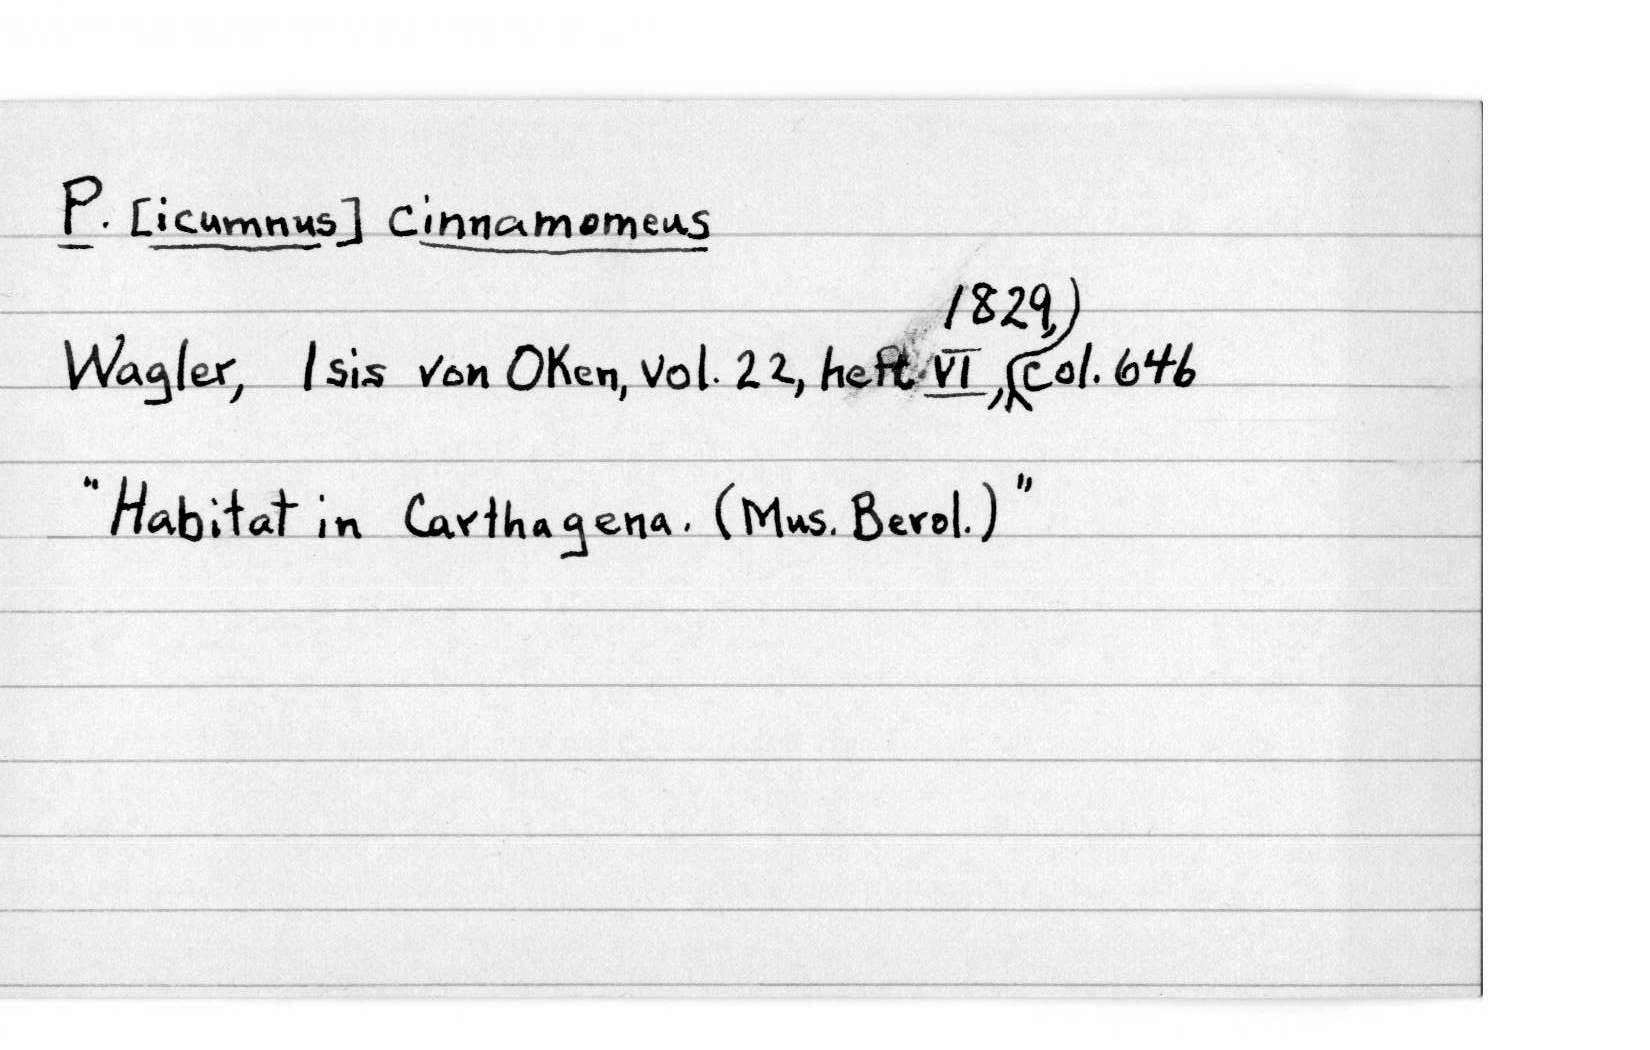 P. [icumnus] cinnamomeus
Wagler, Isis von Oken, vol. 22, heft VI, 1829, col. 646
"Habitat in Carthagena. (Mus. Berol.)"